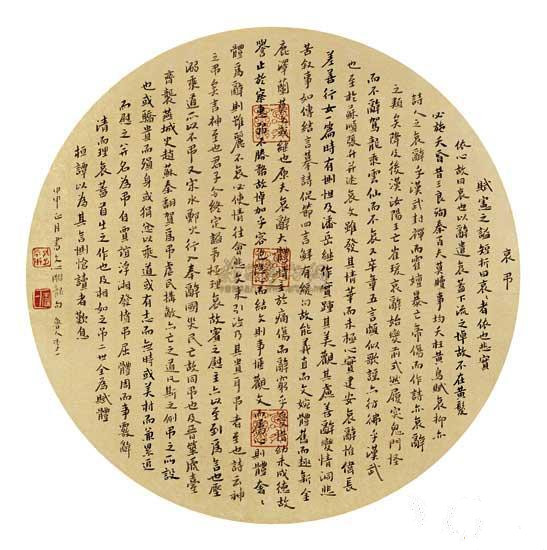 哀弔
賦憲之謚短折曰哀哀者依也悲實
依心故曰哀也以辭遣哀蓋下流之悼故不在黃髮
必施夭昏昔三良殉秦百夫莫贖事均夭枉黃鳥賦哀抑亦
詩人之哀辭乎漢武封禪而霍嬗暴亡帝傷而作詩亦哀辭
之類矣降及後漢汝陽王亡崔瑗哀辭始變前式然履突鬼門怪
而不辭駕龍乘雲仙而不哀又卒章五言頗似歌謠亦彷彿乎漢武
也至於蘇順張升並述哀文雖發其情華而未極心實建安哀辭惟偉長
差善行女一篇時有惻怛及潘岳繼作實踵其美觀其慮善辭變情洞悲
苦敘事如傳結言摹詩促節四言鮮有緩句故能義直而文婉體舊而趣新金
鹿澤蘭莫之或繼也原夫哀辭大體情主於痛傷而辭窮乎愛惜幼未成德故
譽止於察惠弱不勝務故悼加乎容色隱心而結文則事愜觀文而屬心則體奢奢
體為辭則雖麗不哀必使情往會悲文來引泣乃其貴耳弔者至也詩云神
之弔矣言神至也君子令終定謚事極理哀故賓之慰主以至到為言也壓
溺乘道所以不弔又宋水鄭火行人奉辭國災民亡故同弔也及晉築虒臺
齊襲燕城史趙蘇秦翻賀為弔虐民搆敵亦亡之道凡斯之例弔之所設
也或驕貴而殞身或狷忿以乘道或有志而無時或美材而兼累追
而慰之并名為弔自賈誼浮湘發憤弔屈體周而事覈辭
清而理哀蓋首出之作也及相如之弔二世全為賦體
桓譚以為其言惻愴讀者歎息
甲申正月書文心雕龍句